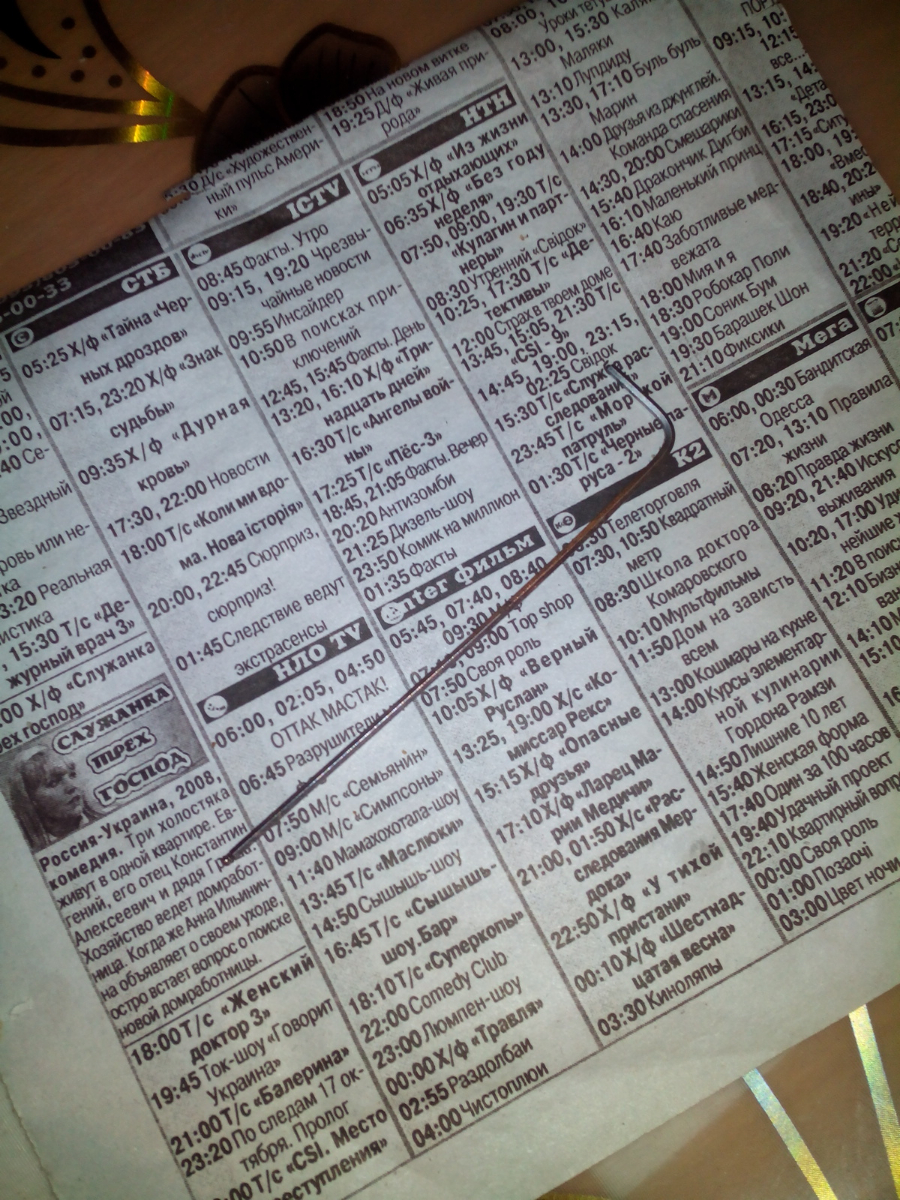 5
00,
9:00,
:40 Се-
Звездный
ровь или не-
ка
3:20 Реальная
истика
, 15:30 Т/с «Де-
журный врач 3»
:00 Х/ф «Служанка
рех господ»
СЛУЖАНКА
ТРЕХ
ГОСПОД
Россия-Украина, 2008,
комедия. Три холостяка
живут в одной квартире. Ев-
гений, его отец Константин
Алексеевич и дядя
Хозяйство ведет домработ-
ница. Когда же Анна Ильинич-
на объявляет о своем уходе,
остро встает вопрос о поиске
новой домработницы.
18:00 Т/с «Женский
доктор 3»
19:45 Ток-шоу «Говорит
Украина»
21:00 Т/с «Балерина»
23:20 По следам 17 ок-
тября. Пролог
:00 Т/с «CSI. Место
преступления»
-00-33
СТБ
05:25 Х/ф «Тайна «Чер-
ных дроздов»
07:15, 23:20 Х/ф «Знак
судьбы»
09:35 Х/ф «Дурная
кровь»
17:30, 22:00 Новости
18:00 Т/с «Коли ми вдо-
ма. Нова історія»
20:00, 22:45 Сюрприз,
сюрприз!
01:45 Следствие ведут
экстрасенсы
НЛО TV
06:00, 02:05, 04:50
ОТТАК МАСТАК!
06:45 Разрушители
07:50 М/с «Семьянин»
09:00 М/с «Симпсоны»
11:40 Мамахохотала-шоу
13:45 Т/с «Маслюки»
14:50 Сышышь-шоу
16:45 Т/с «Сышышь-
шоу. Бар»
18:10 Т/с «Суперкопы»
22:00 Comedy Club
23:00 Люмпен-шоу
00:00 Х/ф «Травля»
02:55 Раздолбаи
04:00 Чистоплюи
Д/с «Художествен-
ный пульс Амери-
ки»
ICTV
08:45 Факты. Утро
09:15, 19:20 Чрезвы-
чайные новости
09:55 Инсайдер
10:50 В поисках при-
ключений
12:45, 15:45 Факты. День
13:20, 16:10 Х/ф «Три-
надцать дней»
16:30 Т/с «Ангелы вой-
ны»
17:25 Т/с «Пёс-3»
18:45, 21:05 Факты. Вечер
20:20 Антизомби
21:25 Дизель-шоу
23:50 Комик на миллион
01:35 Факты
Enter фильм
05:45, 07:40, 08:40,
09:30
09:00 Top shop
07:50 Своя роль
10:05 Х/ф «Верный
Руслан»
13:25, 19:00 Х/с «Ко-
миссар Рекс»
15:15 Х/ф «Опасные
друзья»
17:10 Х/ф «Ларец Ма-
рии Медичи»
21:00, 01:50 Х/с «Рас-
следования Мер-
дока»
22:50 Х/ф «У тихой
пристани»
00:10 Х/ф «Шестнад-
цатая весна»
03:30 Киноляпы
18:50 На новом витке
19:25 Д/ф «Живая при-
рода»
НТН
05:05 Х/ф «Из жизни
отдыхающих»
06:35 Х/ф «Без году
неделя»
07:50, 09:00, 19:30 Т/с
«Кулагин и парт-
неры»
08:30 Утренний «Свідок»
10:25, 17:30 Т/с «Де-
тективы»
12:00 Страх в твоем доме
13:45, 15:05, 21:30 Т/с
«CSI - 9»
14:45, 19:00, 23:15,
02:25 Свідок
15:30 Т/с рас-
следований»
23:45 Т/с
патруль»
01:30 Т/с «Черные
руса - 2»
К2
Телеторговля
07:30, 10:50 Квадратный
метр
08:30 Школа доктора
Комаровского
10:10 Мультфильмы
11:50 Дом на зависть
всем
13:00 Кошмары на кухне
14:00 Курсы элементар-
ной кулинарии
Гордона Рамзи
14:50 Лишние 10 лет
15:40 Женская форма
17:40 Один за 100 часов
19:40 Удачный проект
22:10 Квартирный вопр
00:00 Своя роль
01:00 Позаочі
03:00 Цвет ночи
08:00,
Уроки тету
13:00, 15:30 Каля
Маляки
13:10 Лупдиду
13:30, 17:10 Буль буль
Марин
14:00 Друзья из джунглей.
Команда спасения
14:30, 20:00 Смешарики
15:40 Дракончик Дигби
16:10 Маленький принц
16:40 Каю
17:40 Заботливые мед-
вежата
18:00 Мия и я
18:30 Робокар Поли
19:00 Соник Бум
19:30 Барашек Шон
21:10 Фиксики
Мега
06:00, 00:30 Бандитская
Одесса
07:20, 13:10 Правила
жизни
08:20 Правда жизни
09:20, 21:40 Искус
выживания
10:20, 17:00 Уди
нейшие
11:20 В поис
12:10 Бизн
ван
14:10
15:10
16
09:15, 10:
12:15
все...
13:15, 14:
«Дета
16:15, 23:0
17:15 «Ситу
18:00, 19:
«Вмес
18:40, 20:2
ины»
19:20 «Не
терр
21:20 «Со
22:00 «
07: